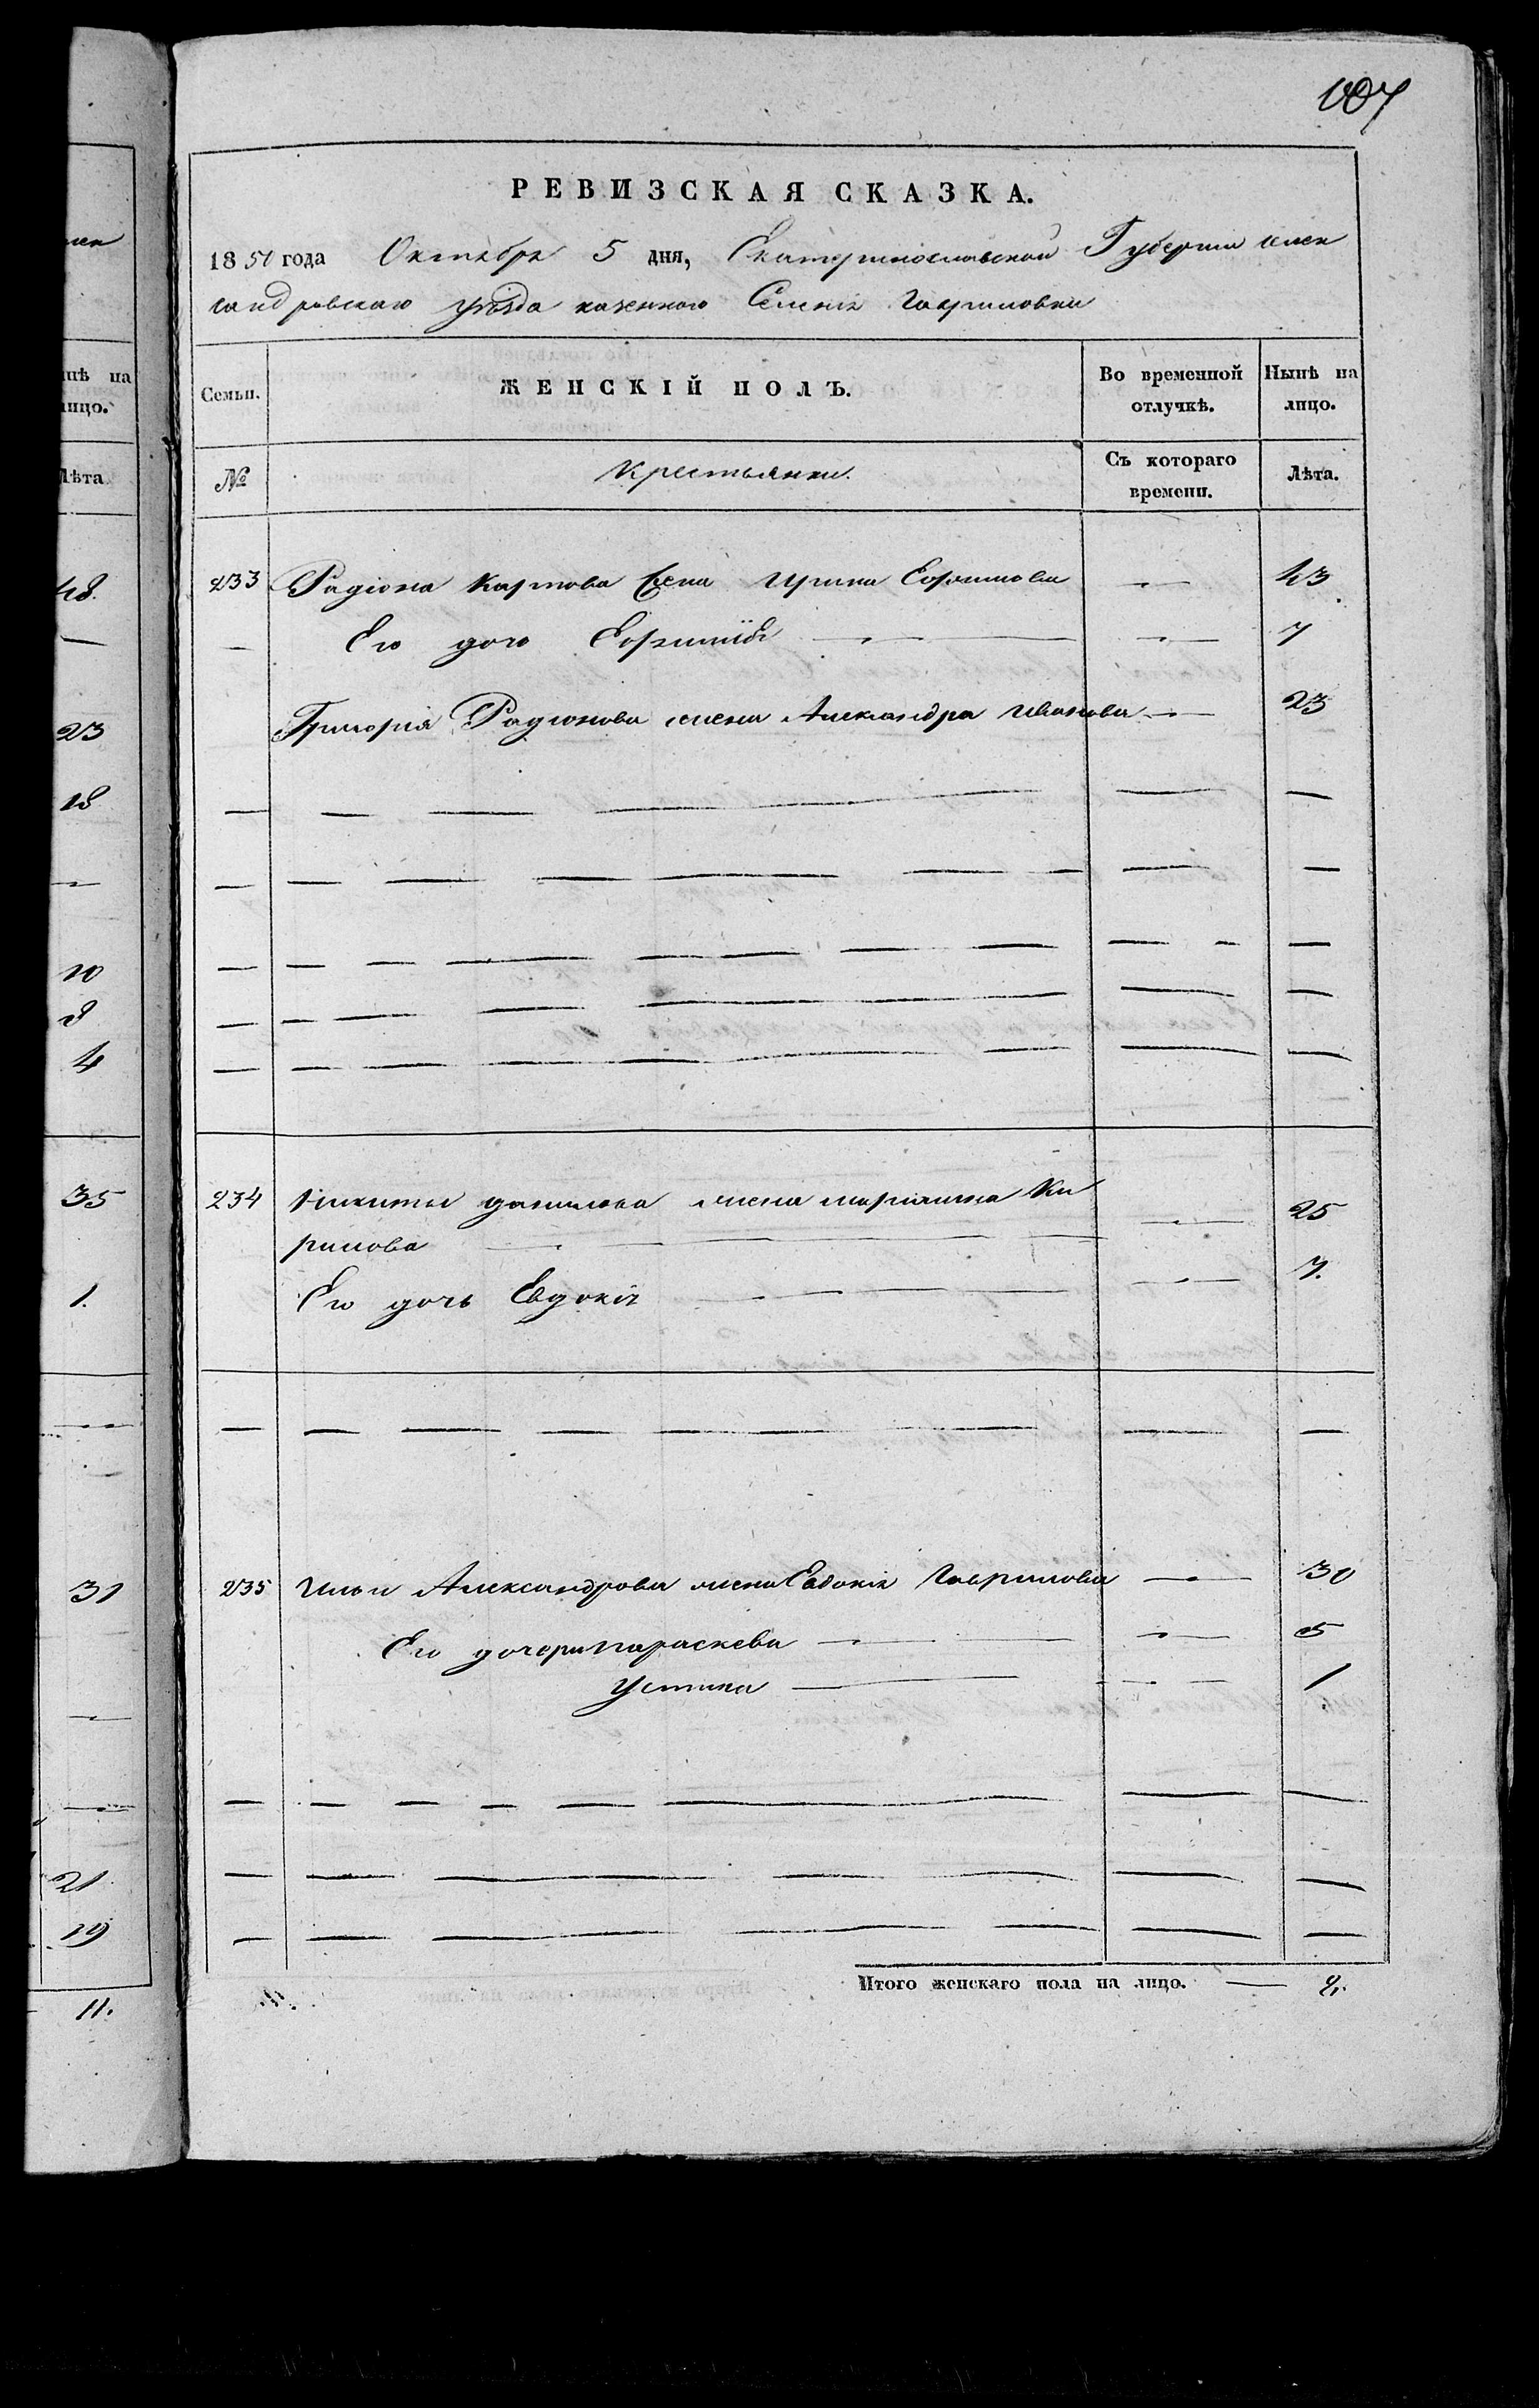 107
РЕВИЗСКАЯ СКАЗКА.
1850 года Октября 5 дня, Екатеринославской Губернiи Алек
сандровскаго уѣзда казенного Селенiя Гавриловки
нѣ на
лицо.
Лѣта
Семьи.
ЖЕНСКIЙ ПОЛЪ.
Во временной отлучкѣ.
Нынѣ на лицо.
№
Крестьянки.
Съ котораго времени.
Лѣта.
48.
23
18
10
8
4
35
1.
31
21
19
11.
233 Радiона Карпова жена Ирина 43
Его дочь 7
Григорiя Радiонова жена Александра Иванова 23
234 Никиты Данилова жена Марiанна Ки
рилова 25
Его дочь Евдокiя 7.
235 Ильи Александрова жена Евдокiя Гаврилова 30
Его дочери Параскева 5
Устина 1
Итого женскаго пола на лицо. 8.